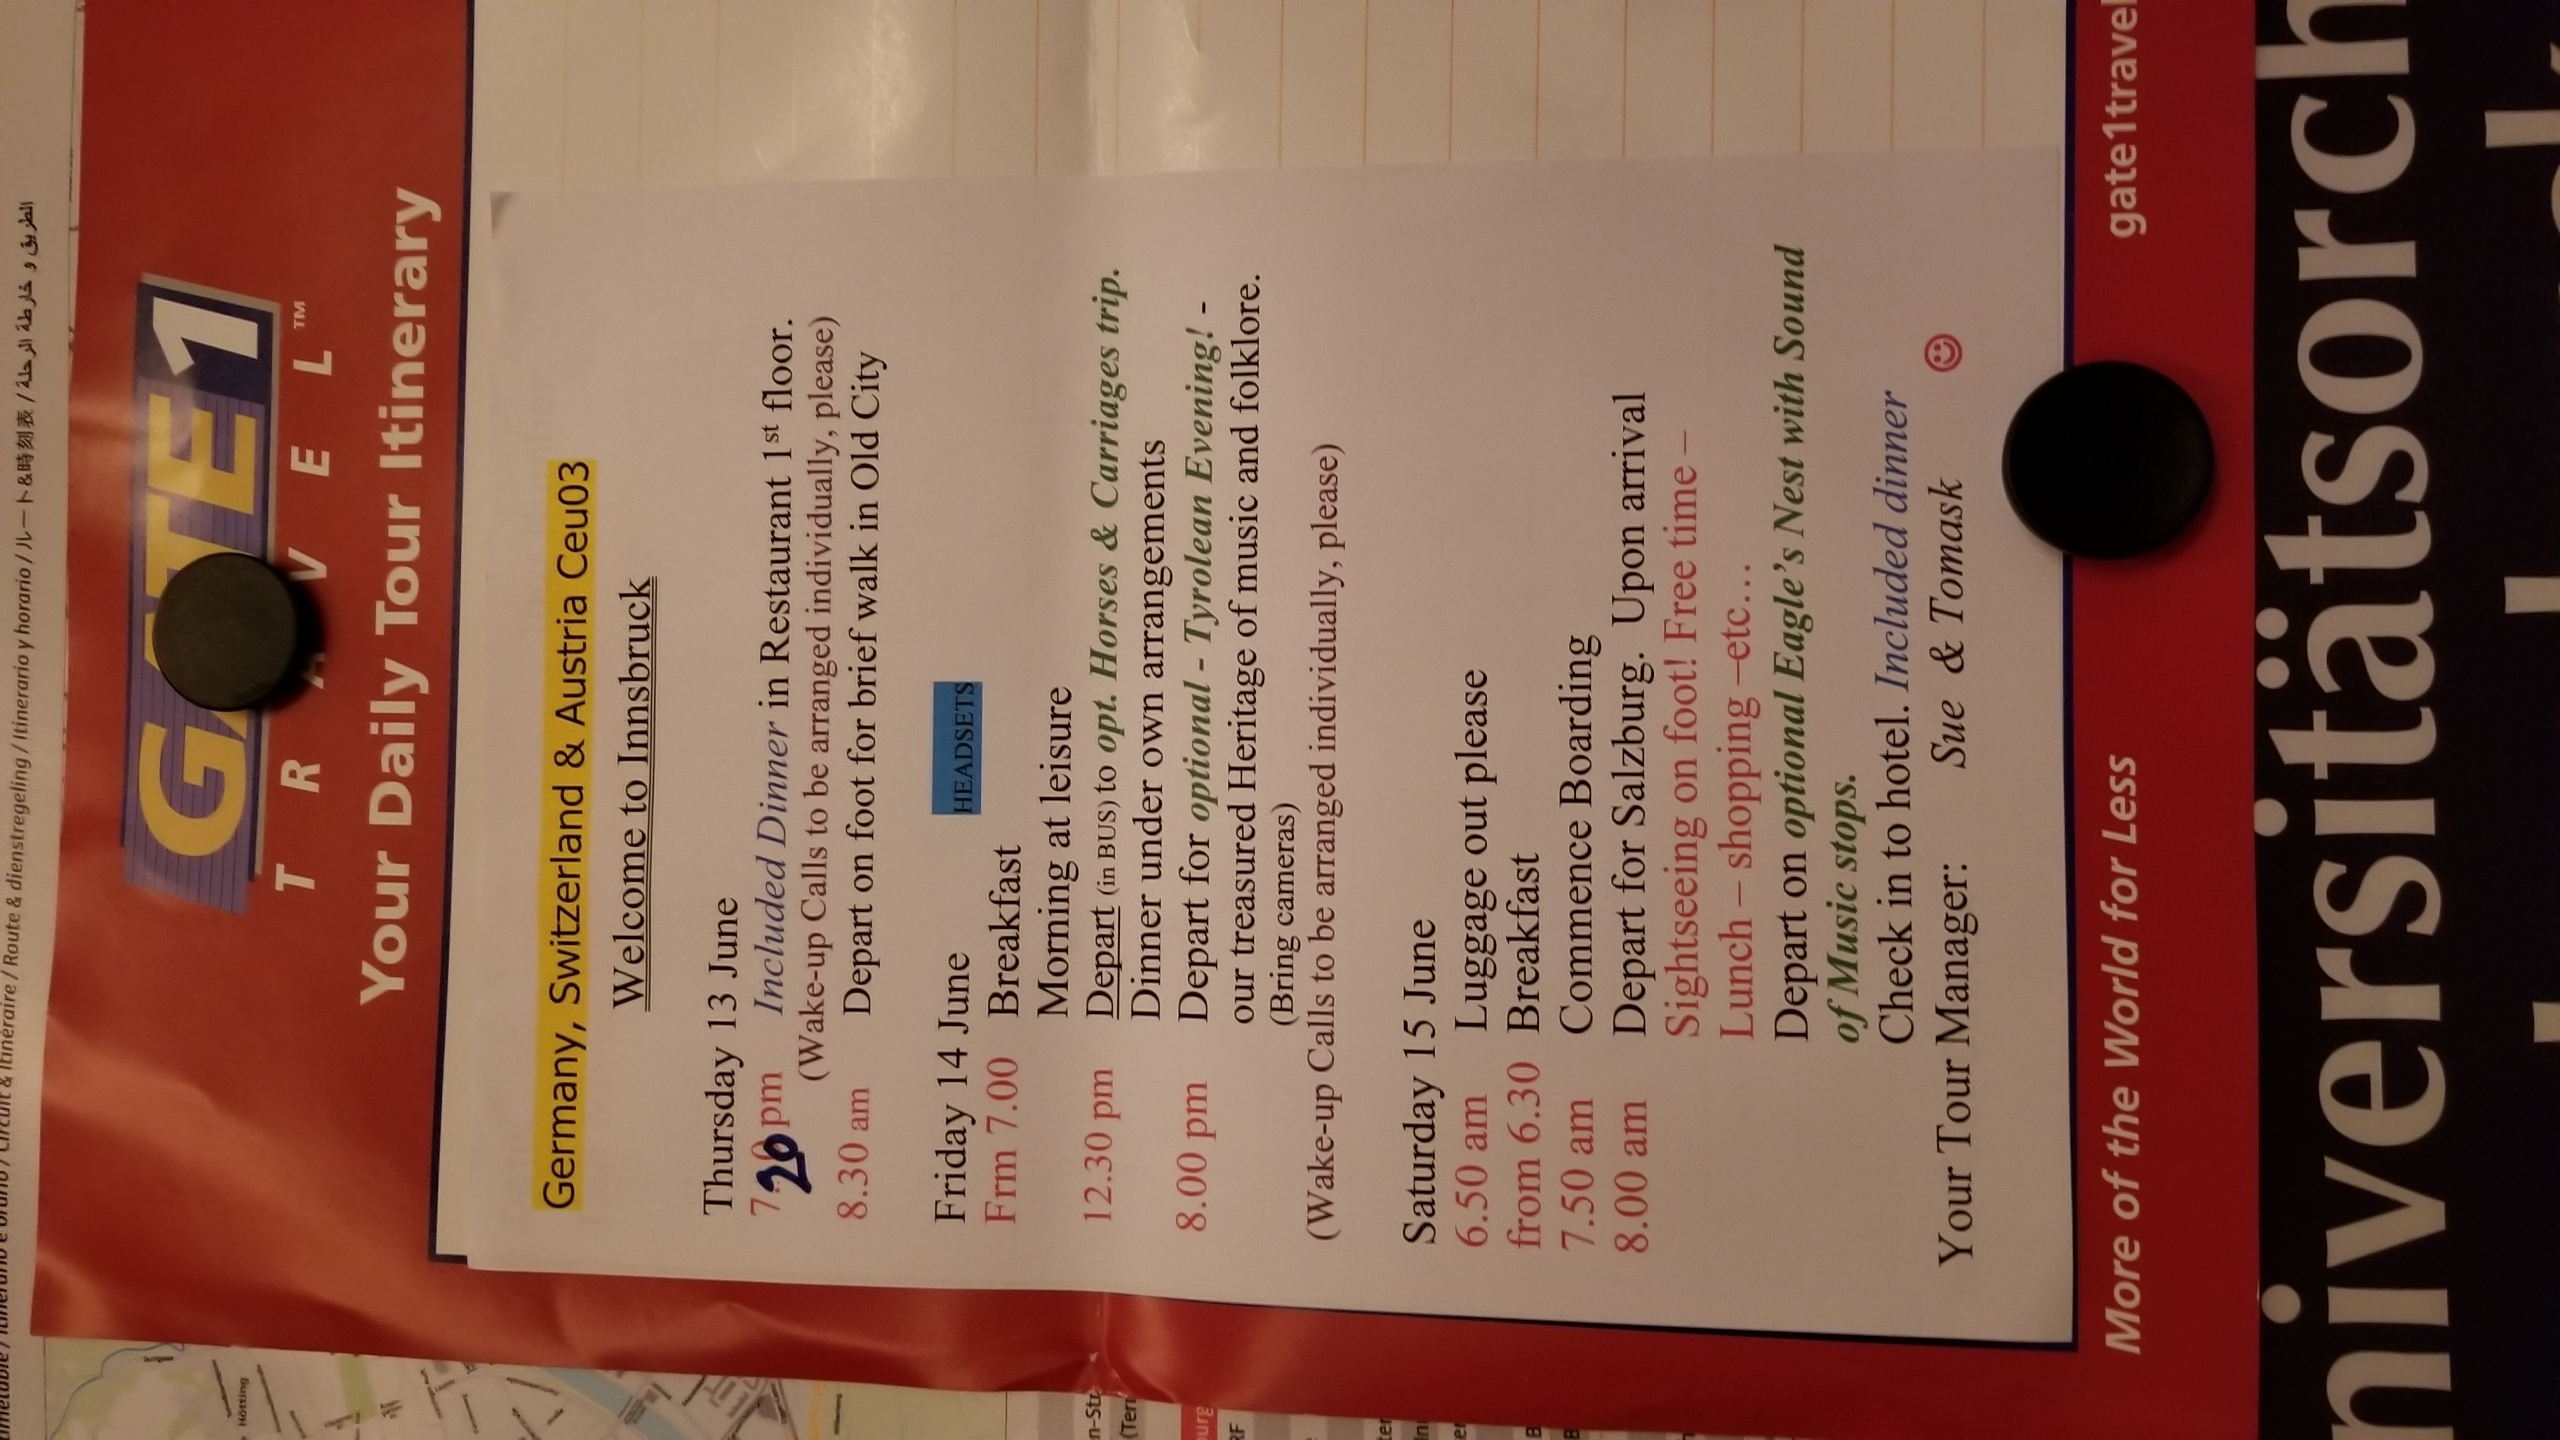 الطريق و خارطة الرحلة / ルート&時刻表 / Itinerario y horario / Route & dienstregeling / Circuit & Itinéraire
GATE 1
TRAVEL™
Your Daily Tour Itinerary
Germany, Switzerland & Austria Ceu03
Welcome to Innsbruck
Thursday 13 June
7.20 pm Included Dinner in Restaurant 1st floor.
(Wake-up Calls to be arranged individually, please)
8.30 am Depart on foot for brief walk in Old City
HEADSETS
Friday 14 June
Frm 7.00 Breakfast
Morning at leisure
12.30 pm Depart (in BUS) to opt. Horses & Carriages trip.
Dinner under own arrangements
8.00 pm Depart for optional - Tyrolean Evening! -
our treasured Heritage of music and folklore.
(Bring cameras)
(Wake-up Calls to be arranged individually, please)
Saturday 15 June
6.50 am Luggage out please
from 6.30 Breakfast
7.50 am Commence Boarding
8.00 am Depart for Salzburg. Upon arrival
Sightseeing on foot! Free time –
Lunch – shopping –etc…
Depart on optional Eagle's Nest with Sound
of Music stops.
Check in to hotel. Included dinner
Your Tour Manager: Sue & Tomask ☺
More of the World for Less gate1travel
niversitätsorch
Hötting